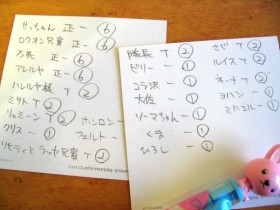 せっちゃん 正一 ⑥
ロックオン兄貴 正一 ⑥
アレルヤ 正一 ⑥
ハレルヤ様 T ②
ミサト T ②
リューミン T ②
ホンロン 一 ①
クリス 一 ①
フェルト 一 ①
リヒティとラッセ兄貴 T ②
CLIO CLOTH PAPERS
隊長 T ②
ビリー 一 ①
コーラ沢 一 ①
大佐 一 ①
ソーマちゃん 一 ①
くま 一 ①
ひろし 一 ①
サジ T ②
ルイス T ②
ネーナ T ②
ヨハン 一 ①
ミハエル 一 ①